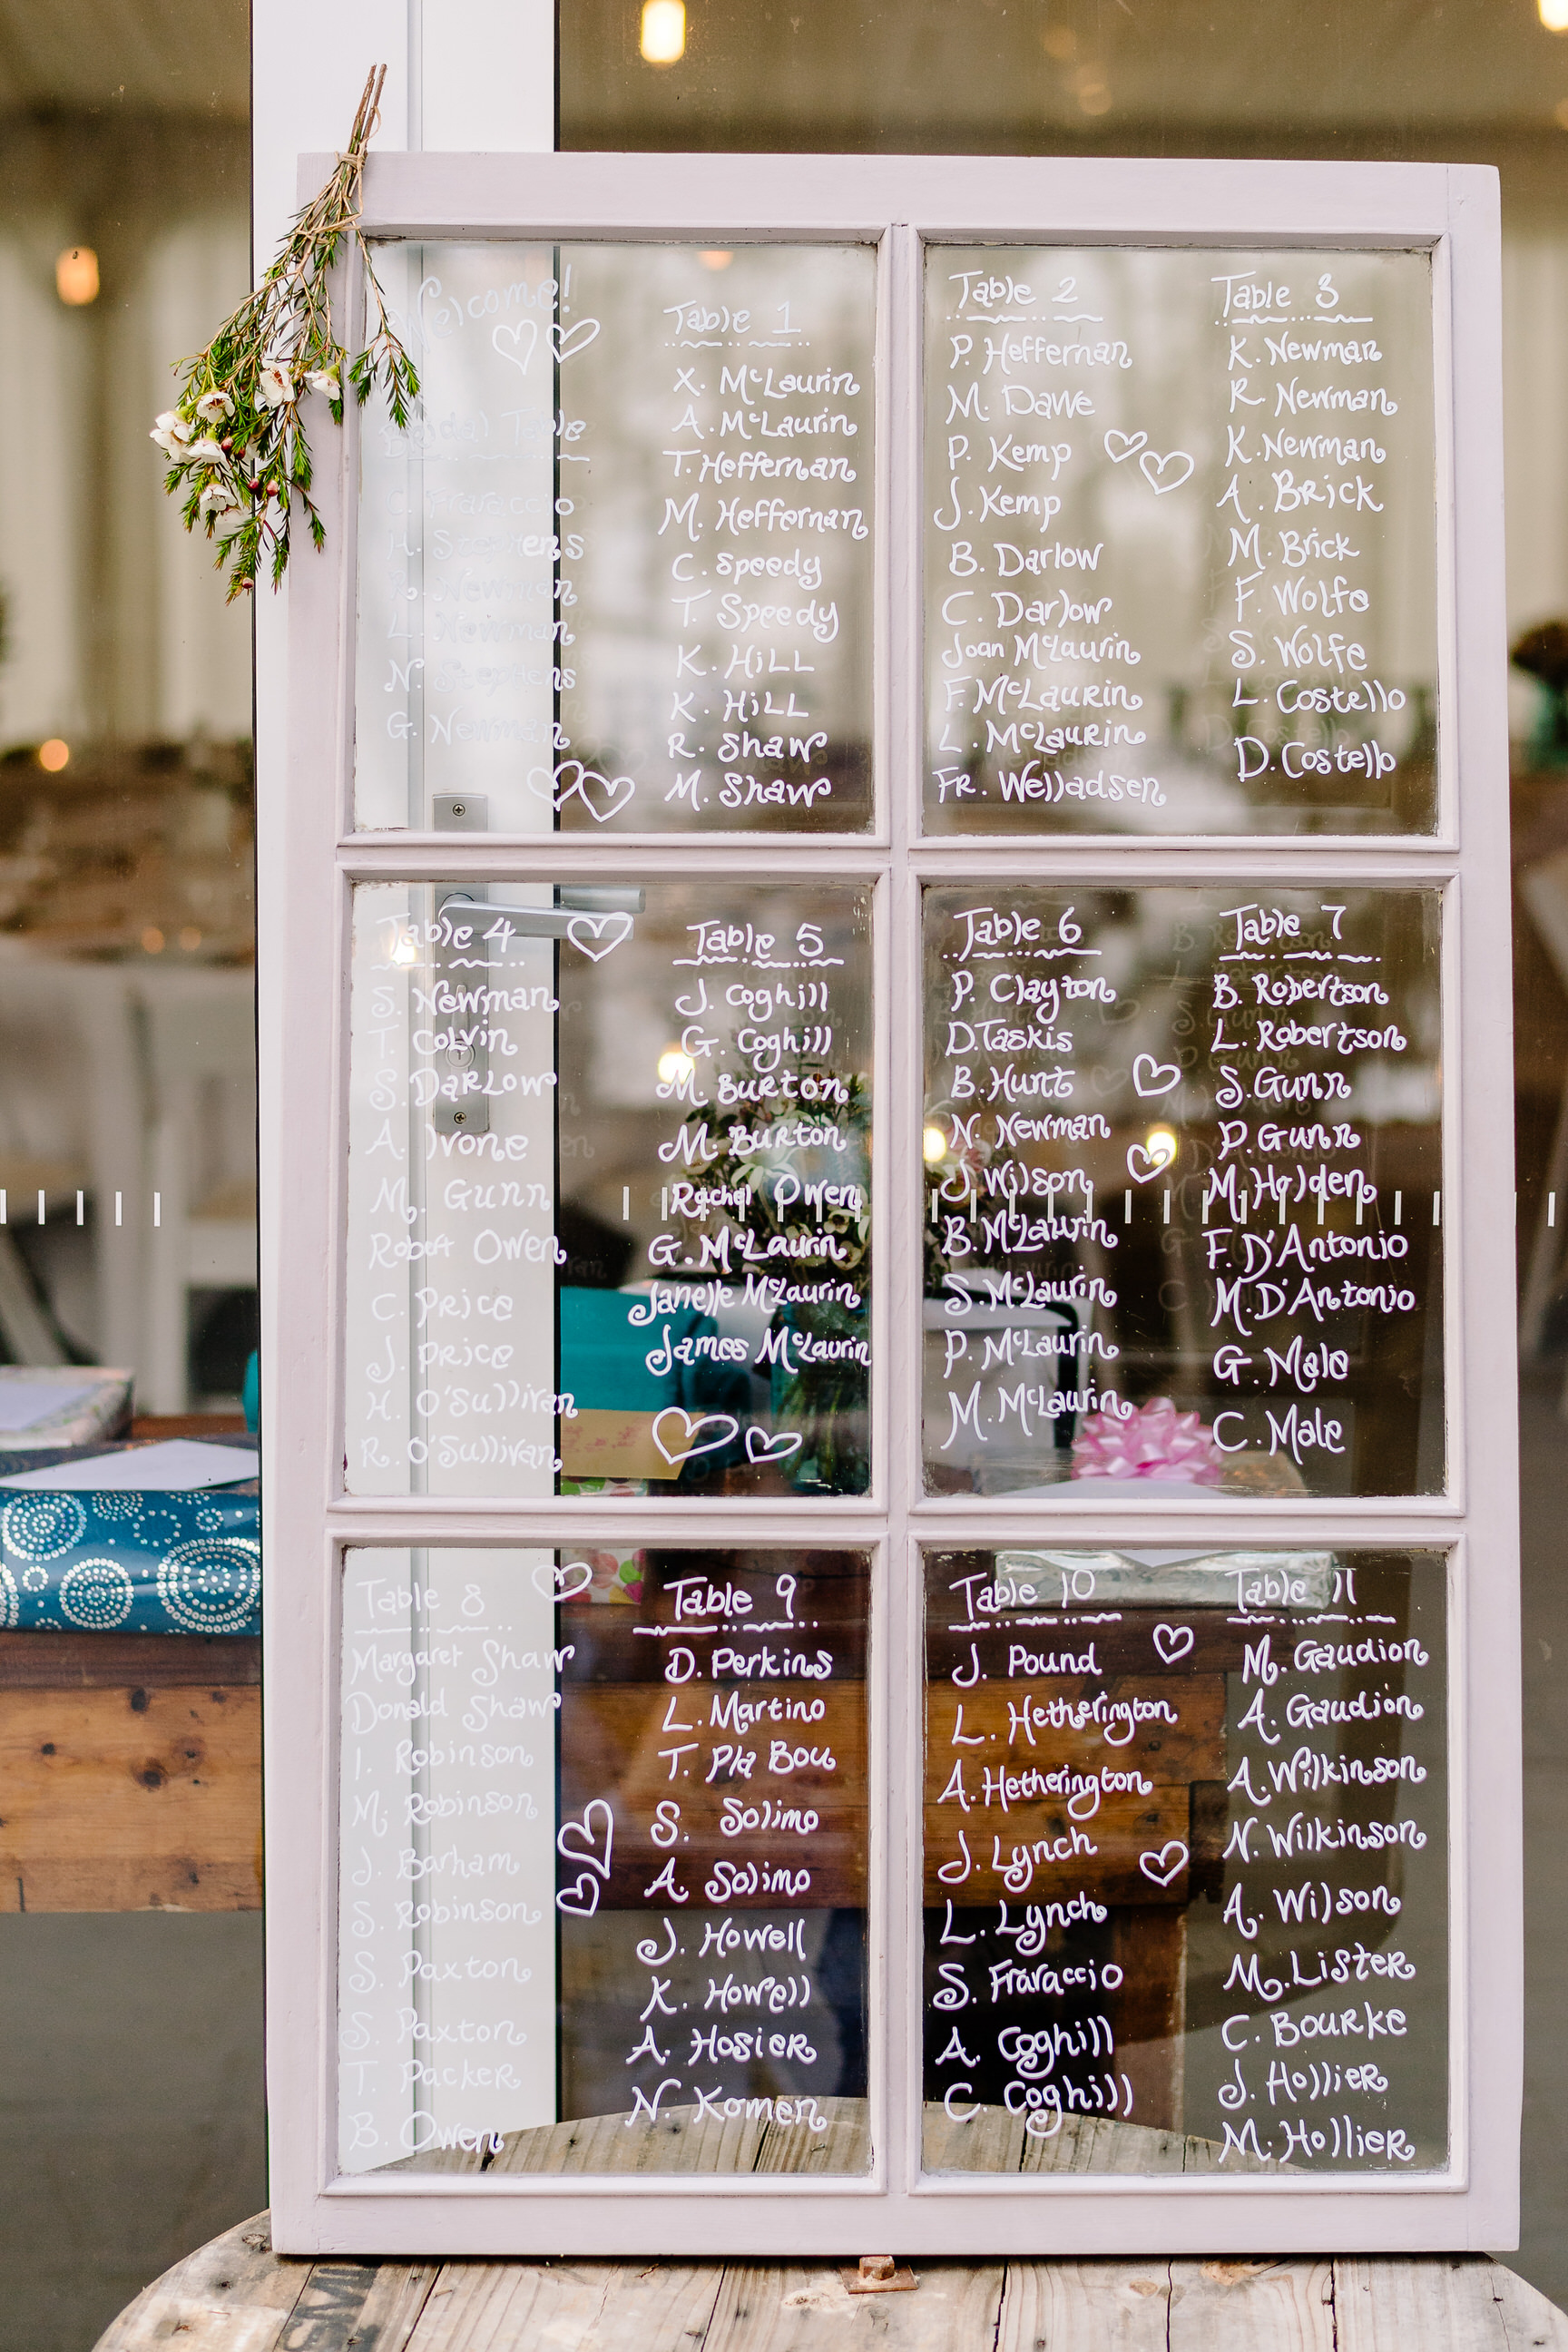 Welcome!
Bridal Table
C. Fraraccio
H. Stephens
R. Newman
L. Newman
N. Stephens
G. Newman
Table 1
X. McLaurin
A. McLaurin
T. Heffernan
M. Heffernan
C. Speedy
T. Speedy
K. HiLL
K. HiLL
R. Shaw
M. Shaw
Table 2
P. Heffernan
M. Dawe
P. Kemp
J. Kemp
B. Darlow
C. Darlow
Joan McLaurin
F. McLaurin
L. McLaurin
FR. Welladsen
Table 3
K. Newman
R. Newman
K. Newman
A. Brick
M. Brick
F. Wolfe
S. Wolfe
L. Costello
D. Costello
Table 4
S. Newman
T. Colvin
S. Darlow
A. Ivone
M. Gunn
Robert Owen
C. Price
J. Price
H. O'Sullivan
R. O'Sullivan
Table 5
J. Coghill
G. Coghill
M. Burton
M. Burton
Rachel Owen
G. McLaurin
Janelle McLaurin
James McLaurin
Table 6
P. Clayton
D. Taskis
B. Hunt
N. Newman
J Wilson
B. McLaurin
S. McLaurin
P. McLaurin
M. McLaurin
Table 7
B. Robertson
L. Robertson
S. Gunn
P. Gunn
M. Holden
F. D'Antonio
M. D'Antonio
G. Male
C. Male
Table 8
Margaret Shaw
Donald Shaw
I. Robinson
M. Robinson
J. Barham
S. Robinson
S. Paxton
S. Paxton
T. Packer
B. Owen
Table 9
D. Perkins
L. Martino
T. Pla Bou
S. Solimo
A. Solimo
J. Howell
K. Howell
A. Hosier
N. Komen
Table 10
J. Pound
L. Hetherington
A. Hetherington
J. Lynch
L. Lynch
S. Fraraccio
A. Coghill
C. Coghill
Table 11
M. Gaudion
A. Gaudion
A. Wilkinson
N. Wilkinson
A. Wilson
M. Lister
C. Bourke
J. Hollier
M. Hollier